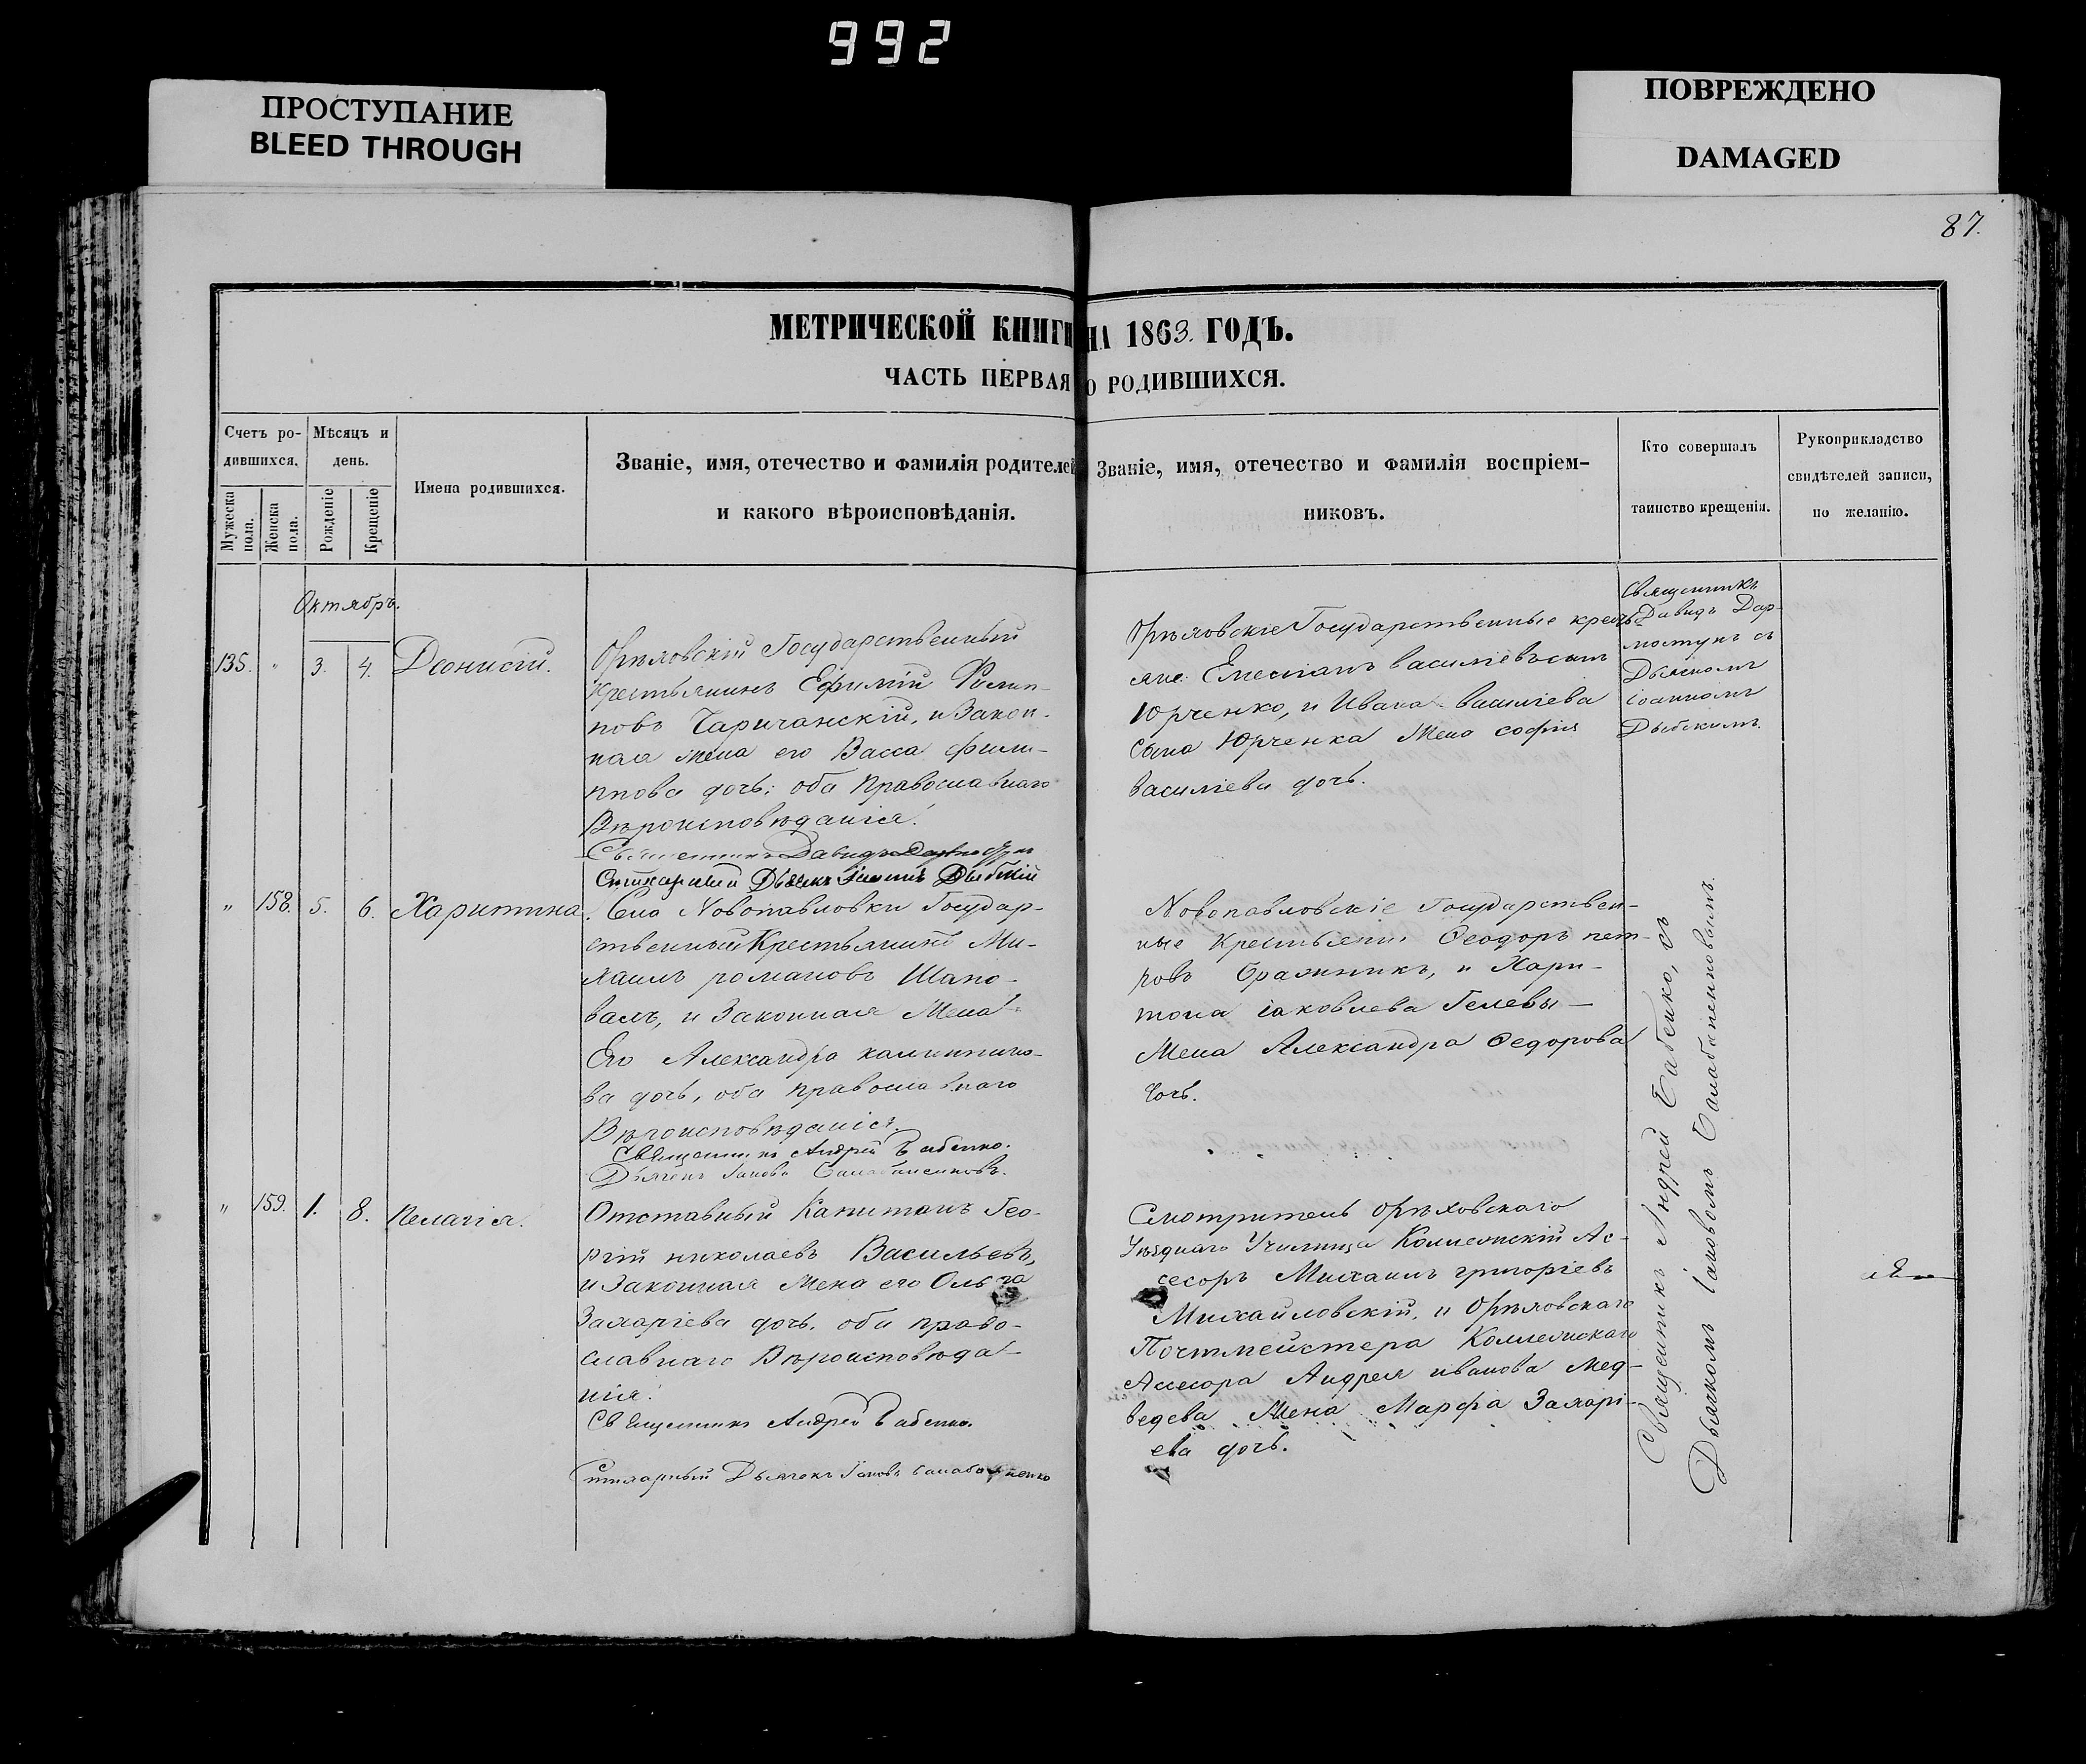 992
ПРОСТУПАНИЕ
BLEED THROUGH
ПОВРЕЖДЕНО
DAMAGED
87.
МЕТРИЧЕСКОЙ КНИГИ НА 1863. ГОДЪ.
ЧАСТЬ ПЕРВАЯ О РОДИВШИХСЯ.
Счетъ ро-
дившихся.
Мужеска
пола.
Женска
пола.
Мѣсяцъ и
день.
Рожденіе
Крещеніе
Имена родившихся.
Званіе, имя, отечество и фамилія родителей
и какого вѣроисповѣданія.
Званіе, имя, отечество и фамилія воспріем-
никовъ.
Кто совершалъ
таинство крещенія.
Рукоприкладство
свидѣтелей записи,
по желанію.
Октябрь.
135. " 3. 4. Діонисій.
Орѣховскій Государственный
Крестьянинъ Ефимій Филип-
повъ Чаричанскій, и Закон-
ная жена его Васса Фили-
ппова дочь; оба Православнаго
Вѣроисповѣданія.
Священникъ Давидъ
Дьячекъ Іоаннъ
Орѣховскіе Государственные кресть-
яне Емеліанъ Василіевъ сынъ
Юрченко, и Ивана Василіева
сына Юрченка Жена Софія
Василіева дочь.
Священникъ
Давидъ Дар-
мостукъ съ
Дьячкомъ
Іоанномъ
" 158. 5. 6. Харитина.
Села Новопавловки Государ-
ственный Крестьянинъ Ми-
хаилъ Романовъ Шапо-
валъ, и Законная Жена
Его Александра Калиннико-
ва дочь, оба православнаго
Вѣроисповѣданія.
Священникъ Андрей Бабенко.
Дьячекъ Іаковъ
Новопавловскіе Государствен-
ные Крестьяне Феодоръ пет-
ровъ Бражникъ, и Хари-
тона Іаковлева Гелевы-
Жена Александра Федорова
дочь.
" 159. 1. 8. Пелагія.
Отставный Капитанъ Гео-
ргій Николаевъ Васильевъ,
и Законная Жена его Ольга
Захаріева дочь, оба право-
славнаго Вѣроисповѣда-
нія.
Священникъ Андрей Бабенко.
Стихарный Дьячекъ Іаковъ
Смотритель Орѣховскаго
Уѣзднаго Училища Коллежскій Ас-
сесоръ Михаилъ Григоріевъ
Михайловскій, и Орѣховскаго
Почтмейстера Коллежскаго
Ассесора Андрея Иванова Мед-
ведева Жена Марфа Захарі-
ева дочь.
Священникъ Андрей Бабенко, съ
Дьячкомъ Іаковомъ